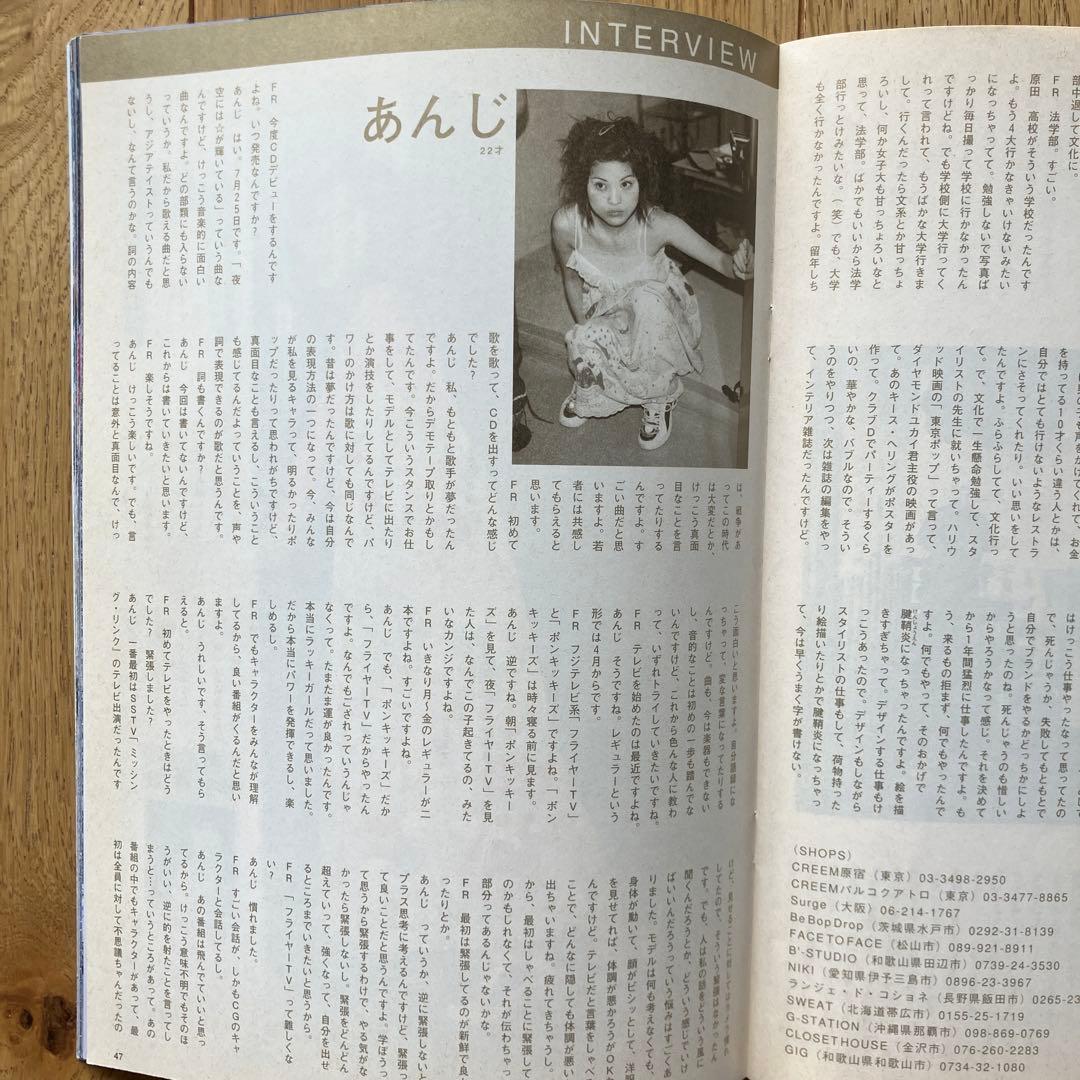 部中退して文化に。
FR 法学部。すごい。
原田 高校がそういう学校だったんです
よ。もう4大行かなきゃいけないみたい
になっちゃってて。勉強しないで写真ば
っかり毎日撮って学校に行かなかったん
ですけどね。でも学校側に大学行ってく
れって言われて、もうばかな大学行きま
して。行くんだったら文系とか甘っちょ
ろいし、何か女子大も甘っちょろいなと
思って、法学部。ばかでもいいから法学
部行っとけみたいな。(笑)でも、大学
も全く行かなかったんですよ。留年しち
を持ってる10才くらい違う人とかは、
自分ではとても行けないようなレストラ
ンにさそってくれたり。いい思いをして
たんですよ。ふらふらしてて、文化行っ
て。で、文化で一生懸命勉強して、スタ
イリストの先生に就いちゃって。ハリウ
ッド映画の「東京ポップ」って言って、
ダイヤモンドユカイ君主役の映画があっ
て。あのキース・ヘリングがポスターを
作って。クラブDでパーティーするくら
いの、華やかな、バブルなので。そうい
うのをやりつつ、次は雑誌の編集をやっ
て、インテリア雑誌だったんですけど。
はけっこう仕事やったな、って思ってたの
で、死んじゃうか、失敗してもともとで
自分でブランドをやるかどっちかにしよ
うと思ったのね。死んじゃうのも惜しい
からやろうかなって感じ。それを決めて
から1年間猛烈に仕事したんですよ。も
う、来るもの拒まず、何でもやったんで
すよ。何でもやって、そのおかげで
腱鞘炎になっちゃったんですよね。絵を描
きすぎちゃって。デザインする仕事もけ
っこうあったので。デザインもしながら
スタイリストの仕事もして、荷物持った
り絵描いたりとかで腱鞘炎になっちゃっ
て、今は早くうまく字が書けない。
(SHOPS)
CREEM原宿(東京)03-3498-2950
CREEMパルコクアトロ(東京)03-3477-8865
Surge(大阪)06-214-1767
BeBopDrop(茨城県水戸市)0292-31-8139
FACETOFACE(松山市)089-921-8911
B'-STUDIO(和歌山県田辺市)0739-24-3530
NIKI(愛知県伊予三島市)0896-23-3967
ランジェ・ド・コショネ(長野県飯田市)0265-23
SWEAT(北海道帯広市)0155-25-1719
G-STATION(沖縄県那覇市)098-869-0769
CLOSETHOUSE(金沢市)076-260-2283
GIG(和歌山県和歌山市)0734-32-1080
INTERVIEW
あんじ
22才
FR 今度CDデビューをするんです
よね。いつ発売なんですか?
あんじ はい。7月25日です。「夜
空には☆が輝いている」っていう曲な
んですけど、けっこう音楽的に面白い
曲なんですよ。どの部類にも入らない
っていうか。私だから歌える曲だと思
うし、アジアテイストっていうんでも
ないし、なんて言うのかな。詞の内容
は、戦争があ
ってこの時代
は大変だとか、
けっこう真面
目なことを言
ってたりする
んですよ。す
ごい曲だと思
いますよ。若
者には共感し
てもらえると
思います。
FR 初めて
歌を歌って、CDを出すってどんな感じ
でした?
あんじ 私、もともと歌手が夢だったん
ですよ。だからデモテープ取りとかもし
てたんです。今こういうスタンスでお仕
事をして、モデルとしてテレビに出たり
とか演技をしたりしてるんですけど、パ
ワーのかけ方は歌に対しても同じなんで
す。昔は夢だったんですけど、今は自分
の表現方法の一つになって。今、みんな
が私を見るキャラって、明るかったりポ
ップだったりって思われがちですけど、
真面目なことも言えるし、こういうこと
も感じてるんだよっていうことを、声や
詞で表現できるのが歌だと思うんです。
FR 詞も書くんですか?
あんじ 今回は書いてないんですけど、
これからは書いていきたいと思います。
FR 楽しそうですね。
あんじ けっこう楽しいです。でも、言
ってることは意外と真面目なんで、けっ
こう面白いと思いますよ。自分語録にな
っちゃって、変な言葉になってたりする
んですけど。曲も、今は楽器もできない
し、音的なことは初めの一歩も踏んでな
いんですけど、これから色んな人に教わ
って、いずれトライしていきたいですね。
FR テレビを始めたのは最近ですよね。
あんじ そうですね。レギュラーという
形では4月からです。
FR フジテレビ系「フライヤーTV」
と「ポンキッキーズ」ですよね。「ポン
キッキーズ」は時々寝る前に見ます。
あんじ 逆ですね。朝「ポンキッキー
ズ」を見て、夜「フライヤーTV」を見
た人は、なんでこの子起きてるの、みた
いなカンジですよね。
FR いきなり月〜金のレギュラーが二
本ですよね。すごいですよね。
あんじ でも、「ポンキッキーズ」だか
ら、「フライヤーTV」だからやったん
ですよ。なんでもござれっていうんじゃ
なくって。たまたま運が良かったんです。
本当にラッキーガールだって思いました。
だから本当にパワーを発揮できるし、楽
しめるし。
FR でもキャラクターをみんなが理解
してるから、良い番組がくるんだと思い
ますよ。
あんじ うれしいです、そう言ってもら
えると。
FR 初めてテレビをやったときはどう
でした?緊張しました?
あんじ 一番最初はSSTV「ミッシン
グ・リンク」のテレビ出演だったんです
けど、見せることに対しては慣れ
してたので、そういう緊張はなかったん
です。でも、人は私の話をどういう風に
聞くんだろうとか、どういう感じでいけ
ばいいんだろうっていう悩みはすごくあ
りました。モデルは何も考えなくても、
身体が動いて、顔がビシッとして、洋服
を見せてれば、体調が悪かろうがOKな
んですけど。テレビだと言葉をしゃべる
ことで、どんなに隠しても体調が悪い
出ちゃいますね。疲れてきちゃうし。
から、最初はしゃべることに緊張して
のかもしれなくて、それが伝わちゃっ
部分ってあるんじゃないかな。
FR 最初は緊張してるのが新鮮で良か
ったりとか。
あんじ っていうか、逆に緊張しないと
プラス思考に考えるんですけど、緊張っ
て良いことだと思うんですよ。学ぼうっ
て思うから緊張するわけで、やる気がな
かったら緊張しないし。緊張をどんどん
超えていって、強くなって、自分を出せ
るところまでいきたいと思うから。
FR 「フライヤーTV」って難しくな
い?
あんじ 慣れました。
FR すごい会話が、しかもCGのキャ
ラクターと会話してるし。
あんじ あの番組は飛んでていいと思っ
てるから。けっこう意味不明でもそのほ
うがいい、逆に的を射たことを言ってし
まうと…っていうところがあって。あの
番組の中でもキャラクターがあって、最
初は全員に対して不思議ちゃんだったの
47